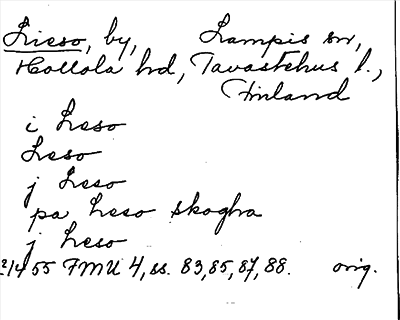 Lieso, by, Lampis sn,
Hollola hd, Tavastehus l.,
Finland
i Leso
Leso
j Leso
pa Leso skogha
j Leso
2/4 55 FMU 4, ss. 83, 85, 87, 88. orig.